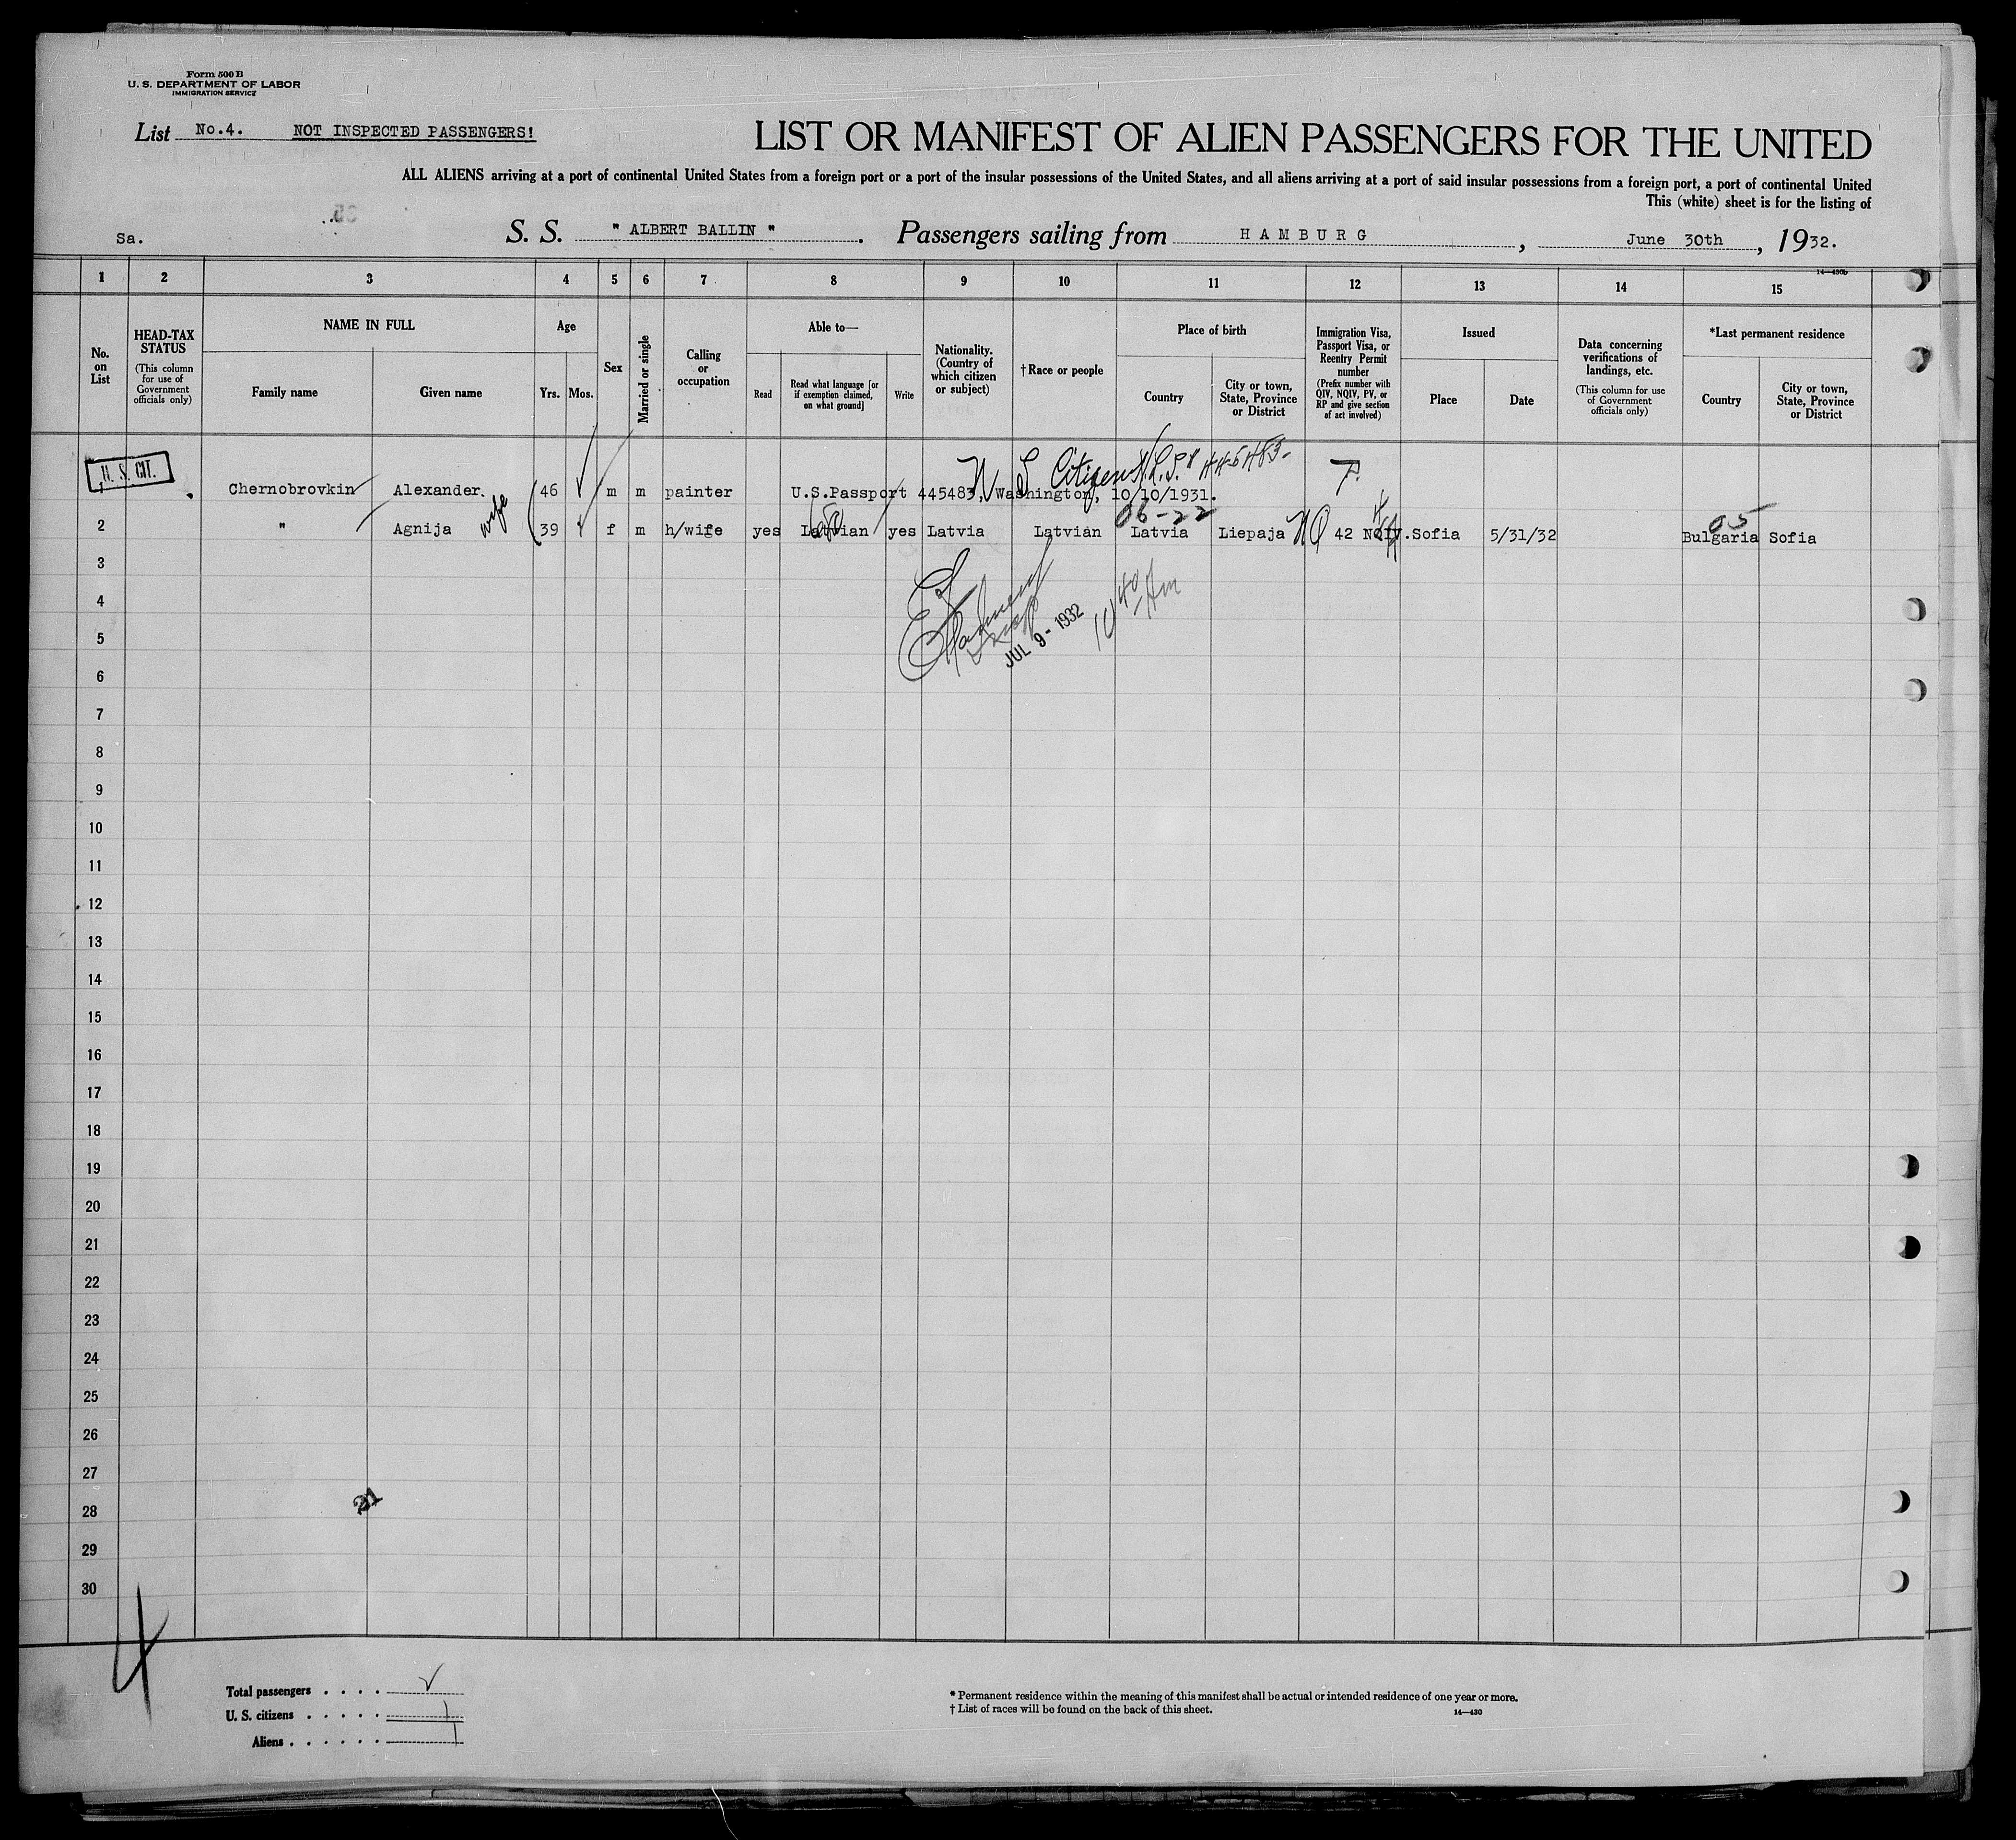 Form 500 B
U. S. DEPARTMENT OF LABOR
IMMIGRATION SERVICE
List No.4. NOT INSPECTED PASSENGERS!
LIST OR MANIFEST OF ALIEN PASSENGERS FOR THE UNITED
ALL ALIENS arriving at a port of continental United States from a foreign port or a port of the insular possessions of the United States, and all aliens arriving at a port of said insular possessions from a foreign port, a port of continental United
This (white) sheet is for the listing of
Sa.
S. S. " ALBERT BALLIN ". Passengers sailing from HAMBURG, June 30th, 1932.
14—430b
1 2 3 4 5 6 7 8 9 10 11 12 13 14 15
No. on List
HEAD-TAX STATUS
(This column for use of Government officials only)
NAME IN FULL
Family name
Given name
Age
Yrs. Mos.
Sex
Married or single
Calling or occupation
Able to—
Read
Read what language [or if exemption claimed, on what ground]
Write
Nationality. (Country of which citizen or subject)
†Race or people
Place of birth
Country
City or town, State, Province or District
Immigration Visa, Passport Visa, or Reentry Permit number
(Prefix number with QIV, NQIV, PV, or RP and give section of act involved)
Issued
Place
Date
Data concerning verifications of landings, etc.
(This column for use of Government officials only)
*Last permanent residence
Country
City or town, State, Province or District
U. S. CIT.
Citizen
1 Chernobrovkin Alexander. 46 m m painter U.S.Passport 445483, Washington, 10/10/1931.
wife
06-22
05
2 " Agnija 39 f m h/wife yes Latvian yes Latvia Latvian Latvia Liepaja 42 NQIV. Sofia 5/31/32 Bulgaria Sofia
3
4
JUL 9 - 1932
5
6
7
8
9
10
11
12
13
14
15
16
17
18
19
20
21
22
23
24
25
26
27
28
29
30
4
Total passengers
U. S. citizens 1
Aliens 1
* Permanent residence within the meaning of this manifest shall be actual or intended residence of one year or more.
† List of races will be found on the back of this sheet.
14—430